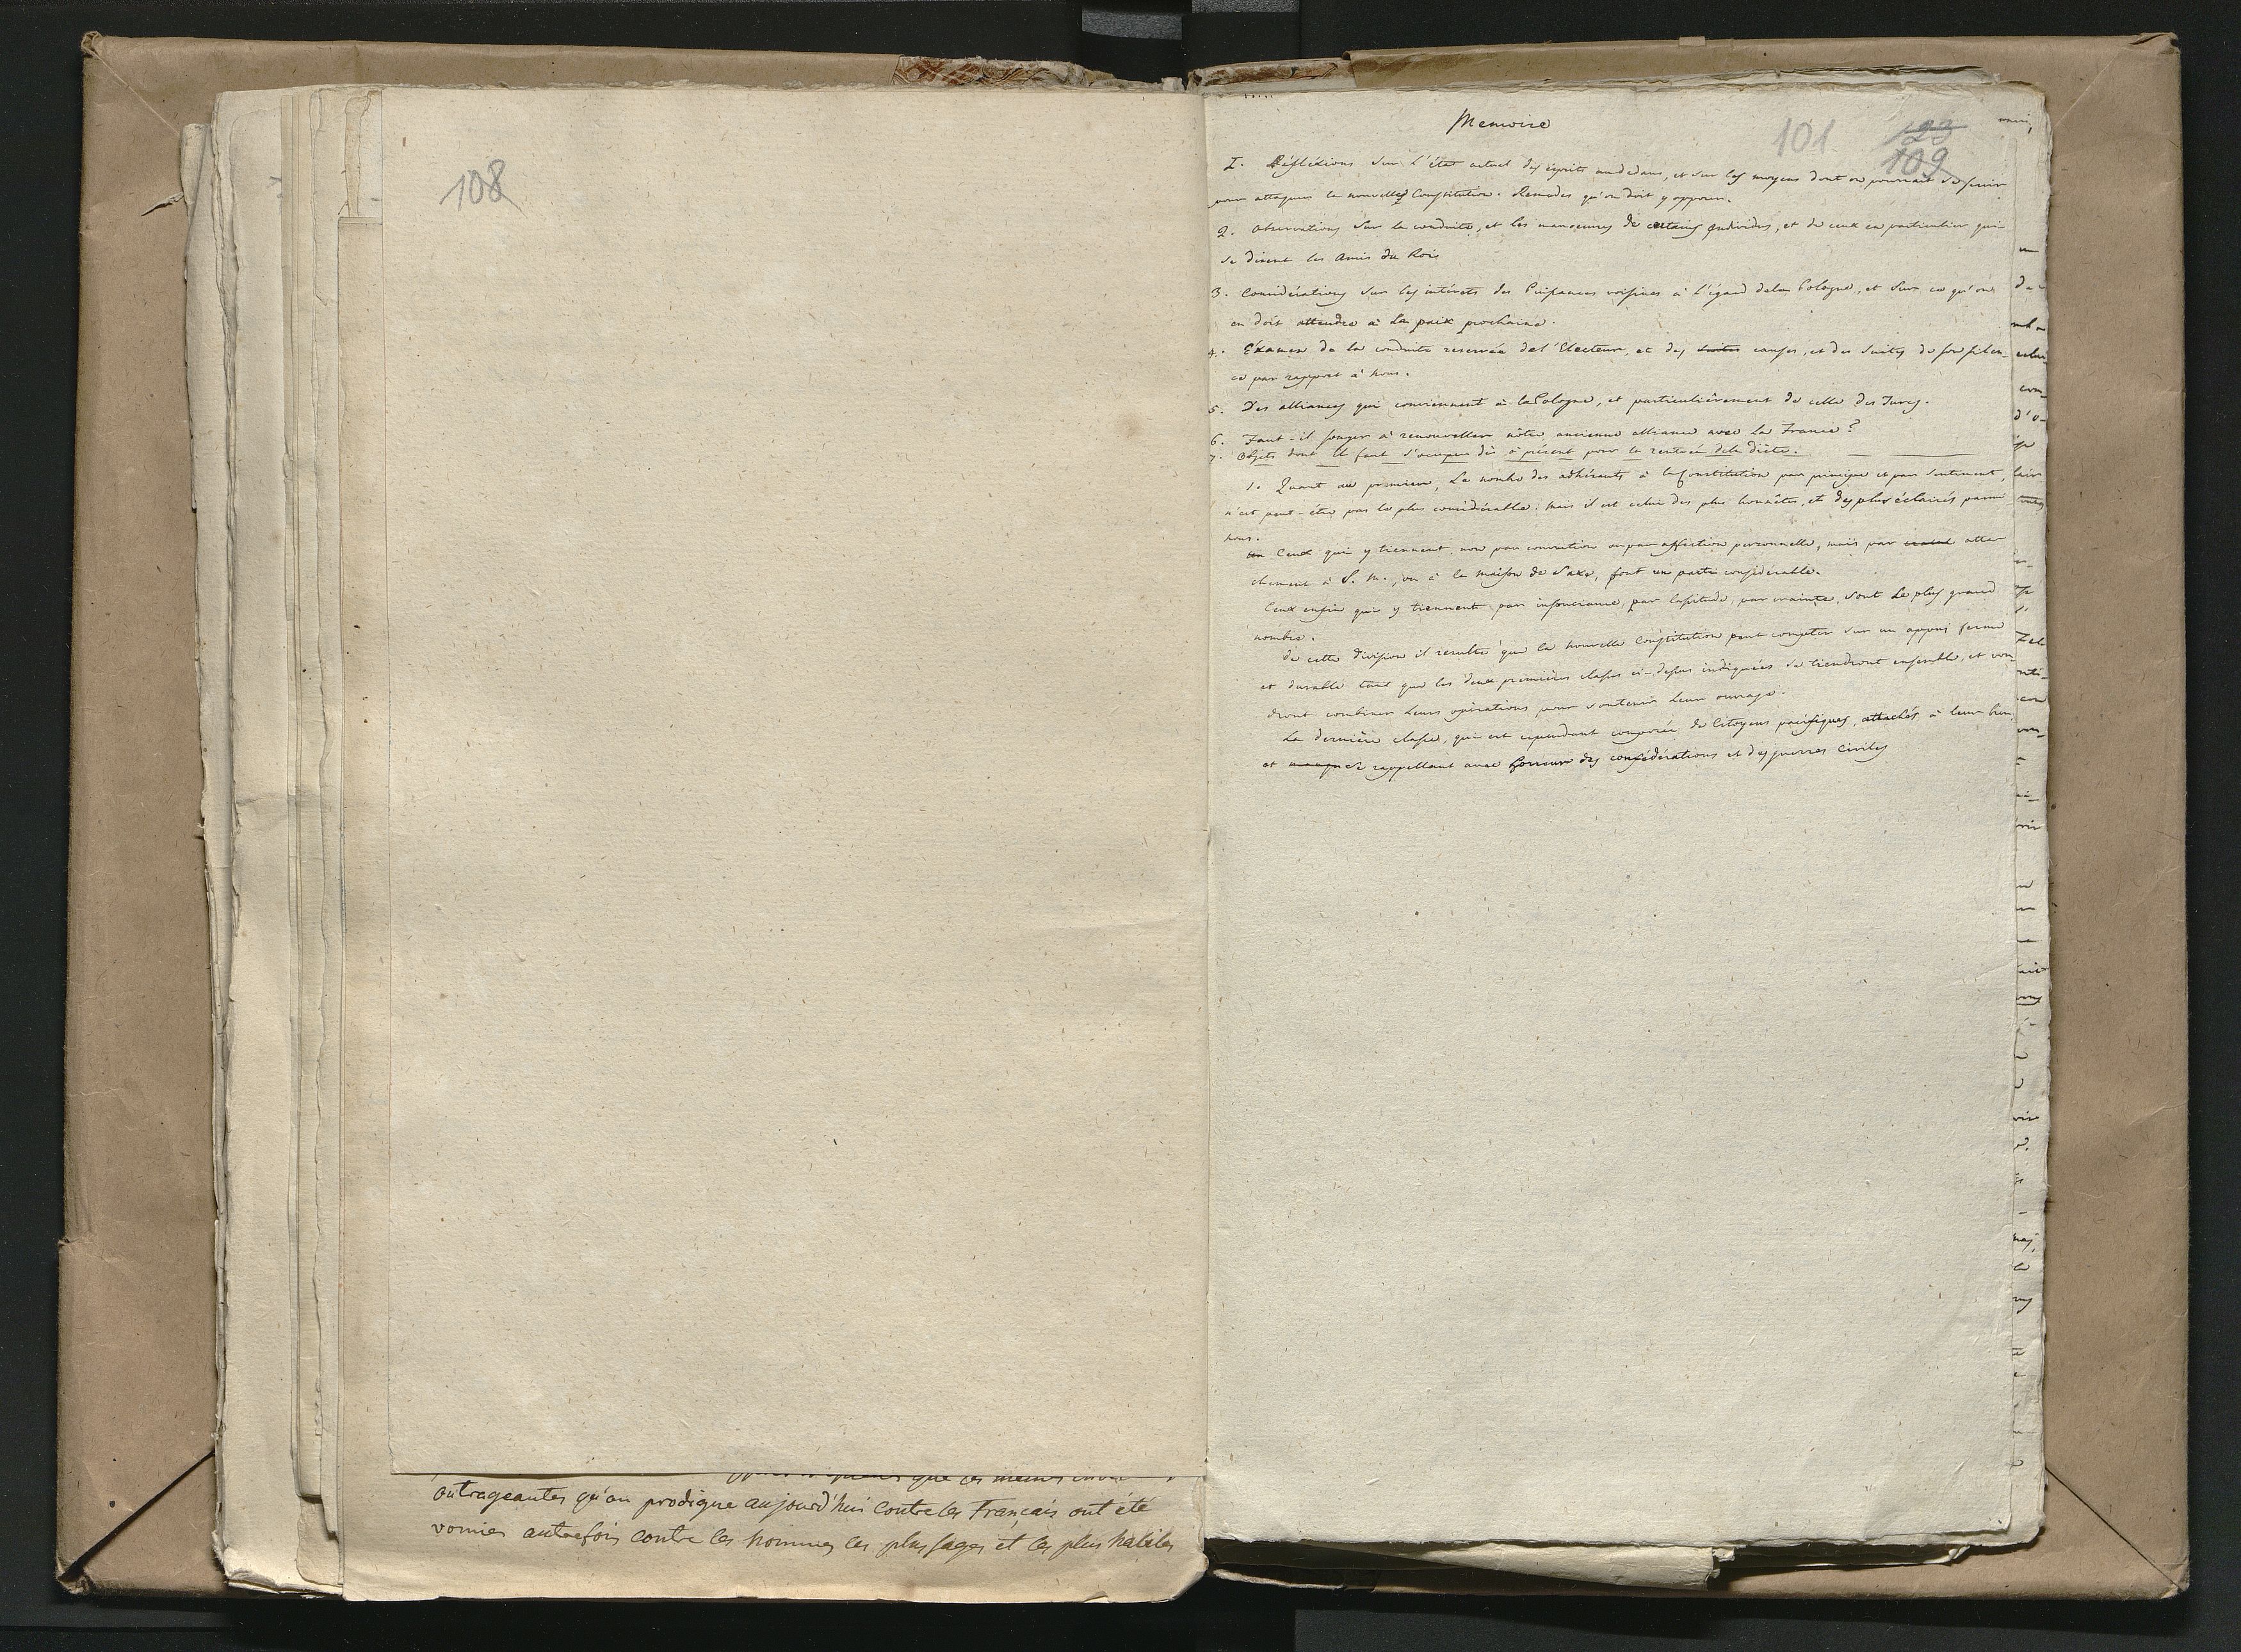 108
outrageantes qu'on prodigue aujourd'hui contre les Français ont été
vomies autrefois contre les hommes les plus sages et les plus habiles
Memoire
101 123
109
I. Réflexions sur l'état actuel des esprits au dedans, et sur les moyens dont on pourrait se servir
pour attaquer la nouvelle Constitution. Remedes qu'on doit y opposer.
2. Observations sur la conduite, et les manoeuvres de certains Individus, et de ceux en particulier qui
se disent les Amis du Roi
3. Considérations sur les intérêts des Puissances voisines à l'égard de la Pologne, et sur ce qu'on
en doit attendre à la paix prochaine.
4. Éxamen de la conduite reservée de l'Electeur, et des suites causes, et des suites de son silen-
ce par rapport à nous.
5. Des alliances qui conviennent à la Pologne, et particulièrement de celle des Turcs.
6. Faut-il songer à renouveller nôtre ancienne alliance avec la France?
7. Objets dont il faut s'occuper dès à présent pour la rentrée de la diète.
1. Quant au premier, Le nombre des adhérants à la Constitution par principe et par sentiment,
n'est peut-être pas le plus considérable: mais il est celui des plus honnêtes, et des plus éclairés parmi
nous.
Ceux qui y tiennent, non par conviction ou par affection personnelle, mais par atta-
chement à S. M., ou à la maison de Saxe, font un parti considérable.
Ceux enfin qui y tiennent par insouciance, par lassitude, par crainte, sont le plus grand
nombre.
De cette division il resulte que la nouvelle Constitution peut compter sur un appui ferme
et durable tant que les deux premières classes ci-dessus indiquées se tiendront ensemble, et vou-
dront combiner leurs opérations pour soutenir leur ouvrage.
La dernière classe, qui est cependant composée de Citoyens pacifiques, attachés à leur bien,
et se rappellant avec horreur des confédérations et des guerres civiles